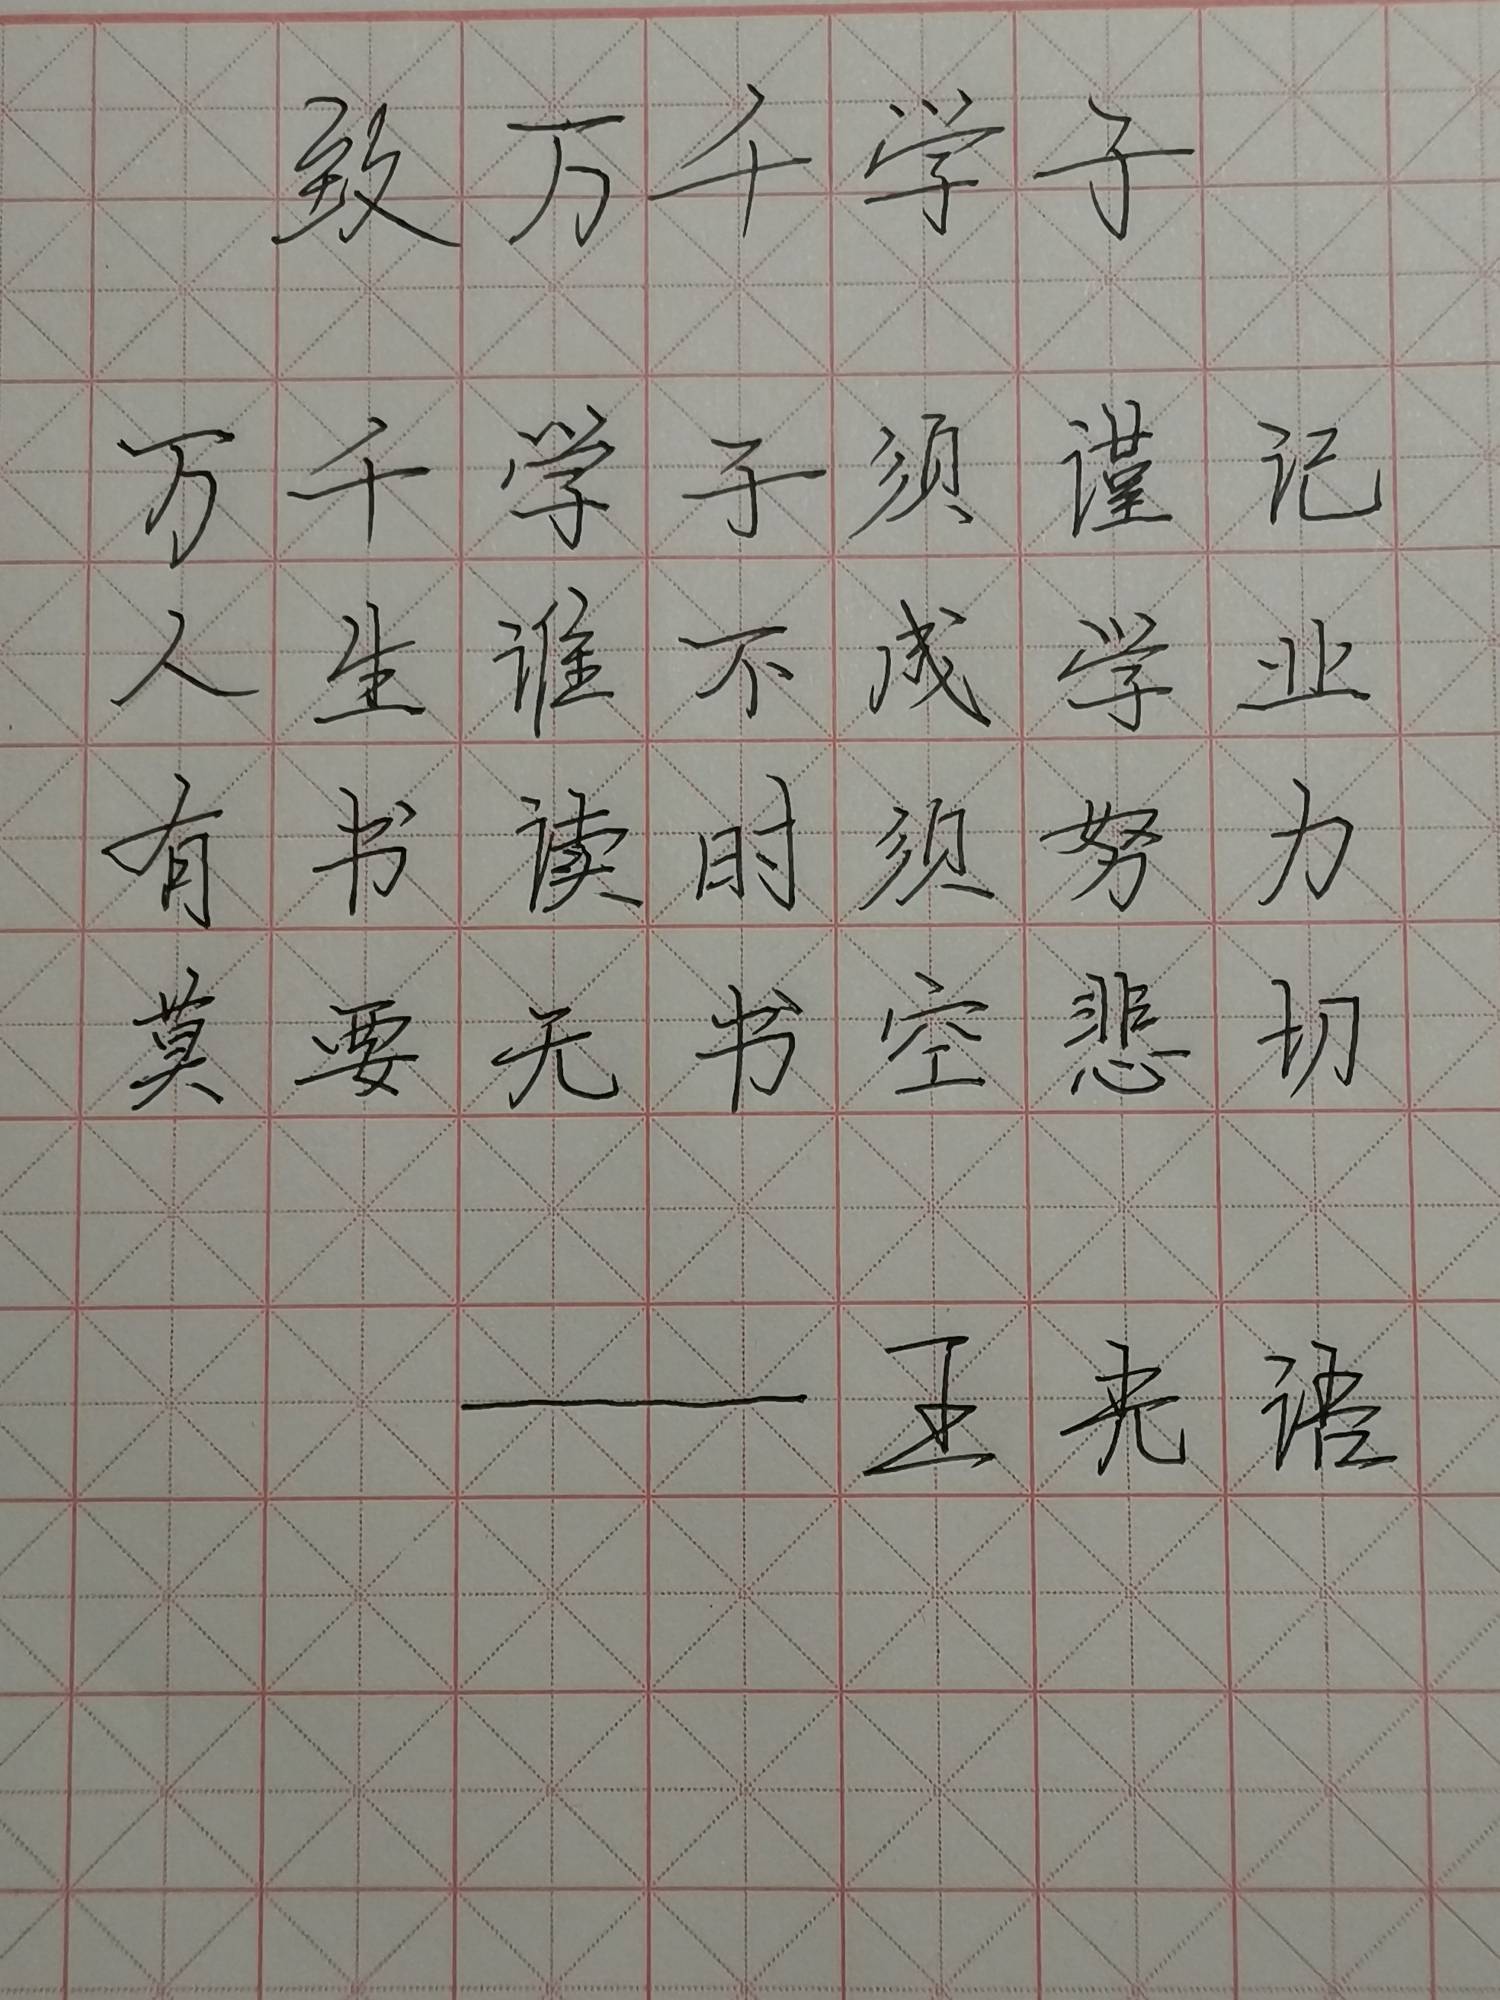 致万千学子
万千学子须谨记
人生谁不成学业
有书读时须努力
莫要无书空悲切
——王光语